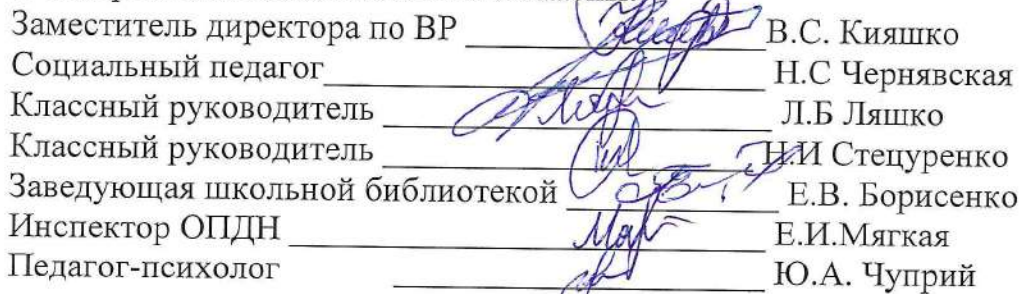 Заместитель директора по ВР В.С. Кияшко
Социальный педагог Н.С Чернявская
Классный руководитель Л.Б Ляшко
Классный руководитель Н.И Стецуренко
Заведующая школьной библиотекой Е.В. Борисенко
Инспектор ОПДН Е.И.Мягкая
Педагог-психолог Ю.А. Чуприй